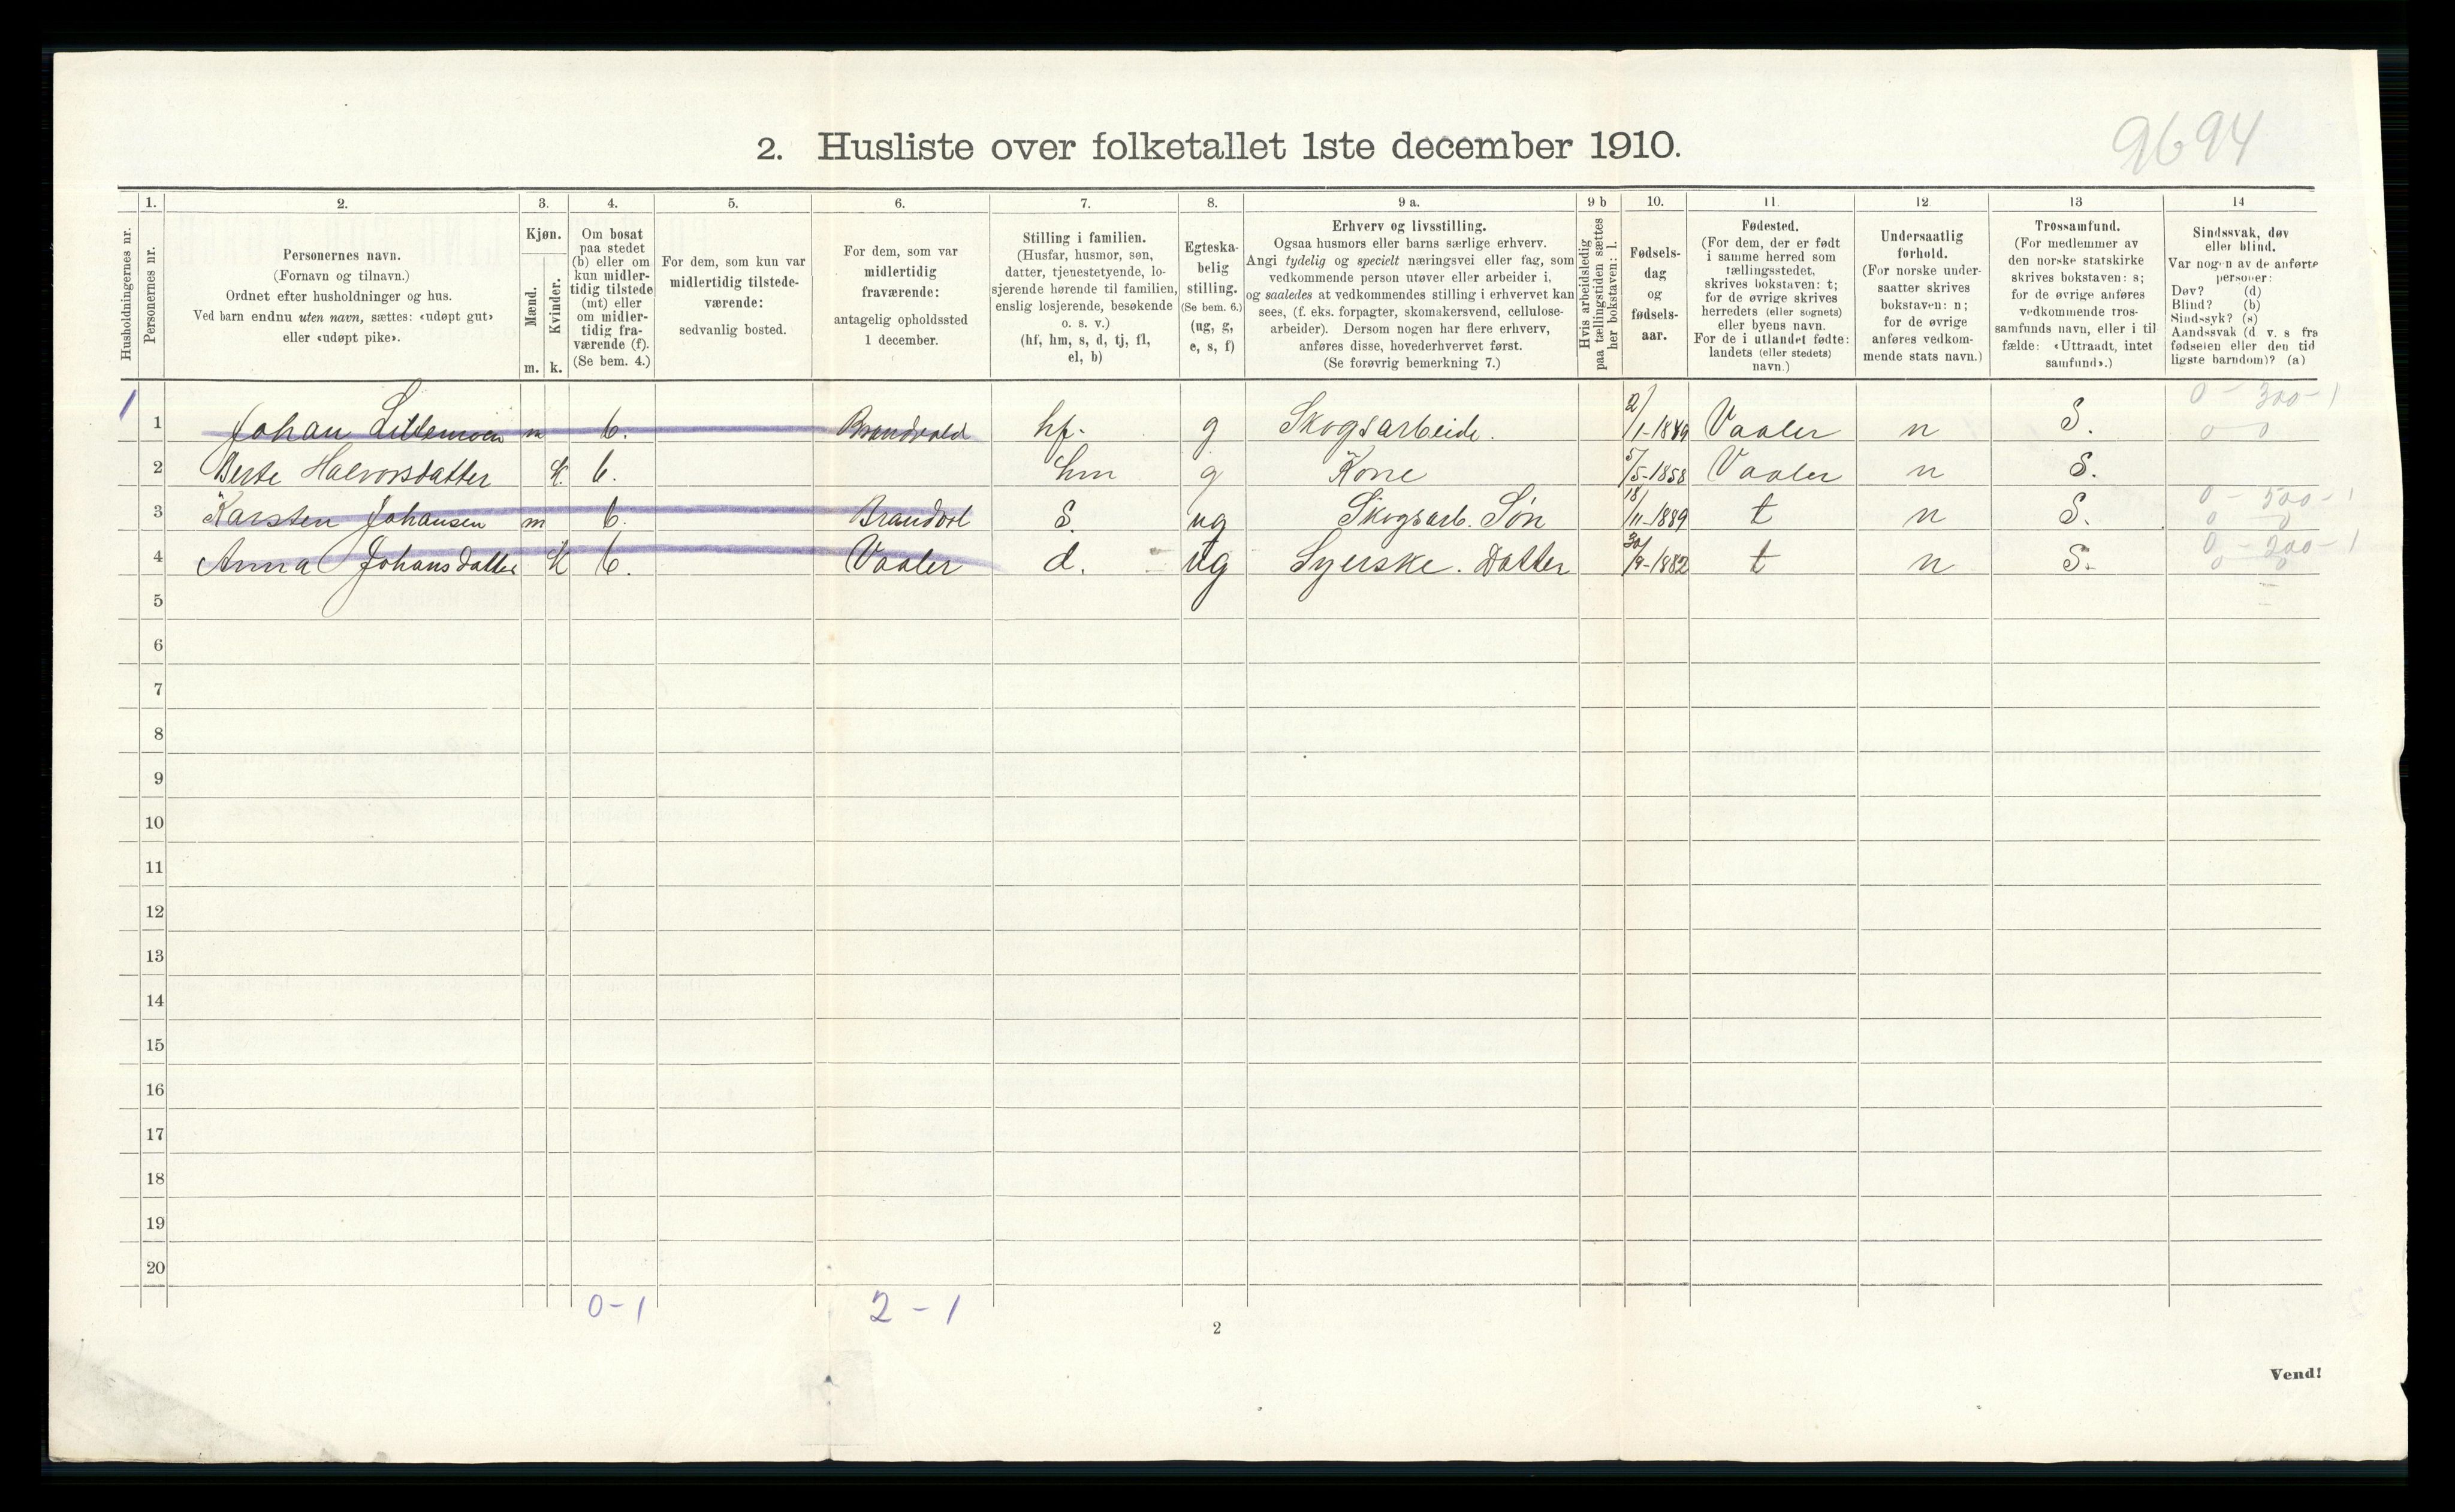 9694
2. Husliste over folketallet 1ste december 1910.
1. 2. 3. 4. 5. 6. 7. 8. 9 a. 9 b 10. 11. 12 13 14
Husholdningernes nr.
Personernes nr.
Personernes navn.
(Fornavn og tilnavn.)
Ordnet efter husholdninger og hus.
Ved barn endnu uten navn, sættes: «udøpt gut»
eller «udøpt pike».
Kjøn.
Mænd.
Kvinder.
m. k.
Om bosat
paa stedet
(b) eller om
kun midler-
tidig tilstede
(mt) eller
om midler-
tidig fra-
værende (f).
(Se bem. 4.)
For dem, som kun var
midlertidig tilstede-
værende:
sedvanlig bosted.
For dem, som var
midlertidig
fraværende:
antagelig opholdssted
1 december.
Stilling i familien.
(Husfar, husmor, søn,
datter, tjenestetyende, lo-
sjerende hørende til familien,
enslig losjerende, besøkende
o. s. v.)
(hf, hm, s, d, tj, fl,
el, b)
Egteska-
belig
stilling.
(Se bem. 6.)
(ug, g,
e, s, f)
Erhverv og livsstilling.
Ogsaa husmors eller barns særlige erhverv.
Angi tydelig og specielt næringsvei eller fag, som
vedkommende person utøver eller arbeider i,
og saaledes at vedkommendes stilling i erhvervet kan
sees, (f. eks. forpagter, skomakersvend, cellulose-
arbeider). Dersom nogen har flere erhverv,
anføres disse, hovederhvervet først.
(Se forøvrig bemerkning 7.)
Hvis arbeidsledig
paa tællingstiden sættes
her bokstaven: l.
Fødsels-
dag
og
fødsels-
aar.
Fødested.
(For dem, der er født
i samme herred som
tællingsstedet,
skrives bokstaven: t;
for de øvrige skrives
herredets (eller sognets)
eller byens navn.
For de i utlandet fødte:
landets (eller stedets)
navn.)
Undersaatlig
forhold.
(For norske under-
saatter skrives
bokstaven: n;
for de øvrige
anføres vedkom-
mende stats navn.)
Trossamfund.
(For medlemmer av
den norske statskirke
skrives bokstaven: s;
for de øvrige anføres
vedkommende tros-
samfunds navn, eller i til
fælde: «Uttraadt, intet
samfund».)
Sindssvak, døv
eller blind.
Var nogen av de anførte
personer:
Døv? (d)
Blind? (b)
Sindssyk? (s)
Aandssvak (d v. s fra
fødselen eller den tid
ligste barndom)? (a)
0 - 300 - 1
1 1 Johan Lillemoen m b. Brandvold hf. g Skogsarbeide. 2/1-1849 Vaaler n S. 0 0
2 Berte Halvorsdatter k. b. hm g Kone 5/5-1858 Vaaler n S.
0 - 500 - 1
3 Karsten Johansen m b. Brandvol S. ug Skogsarb. Søn 18/11-1889 t n S. 0 0
0 - 200 - 1
4 Anna Johansdatter k b. Vaaler d. ug Syerske. Datter 30/9-1882 t n S. 0 0
5
6
7
8
9
10
11
12
13
14
15
16
17
18
19
20
0-1 2-1
2
Vend!